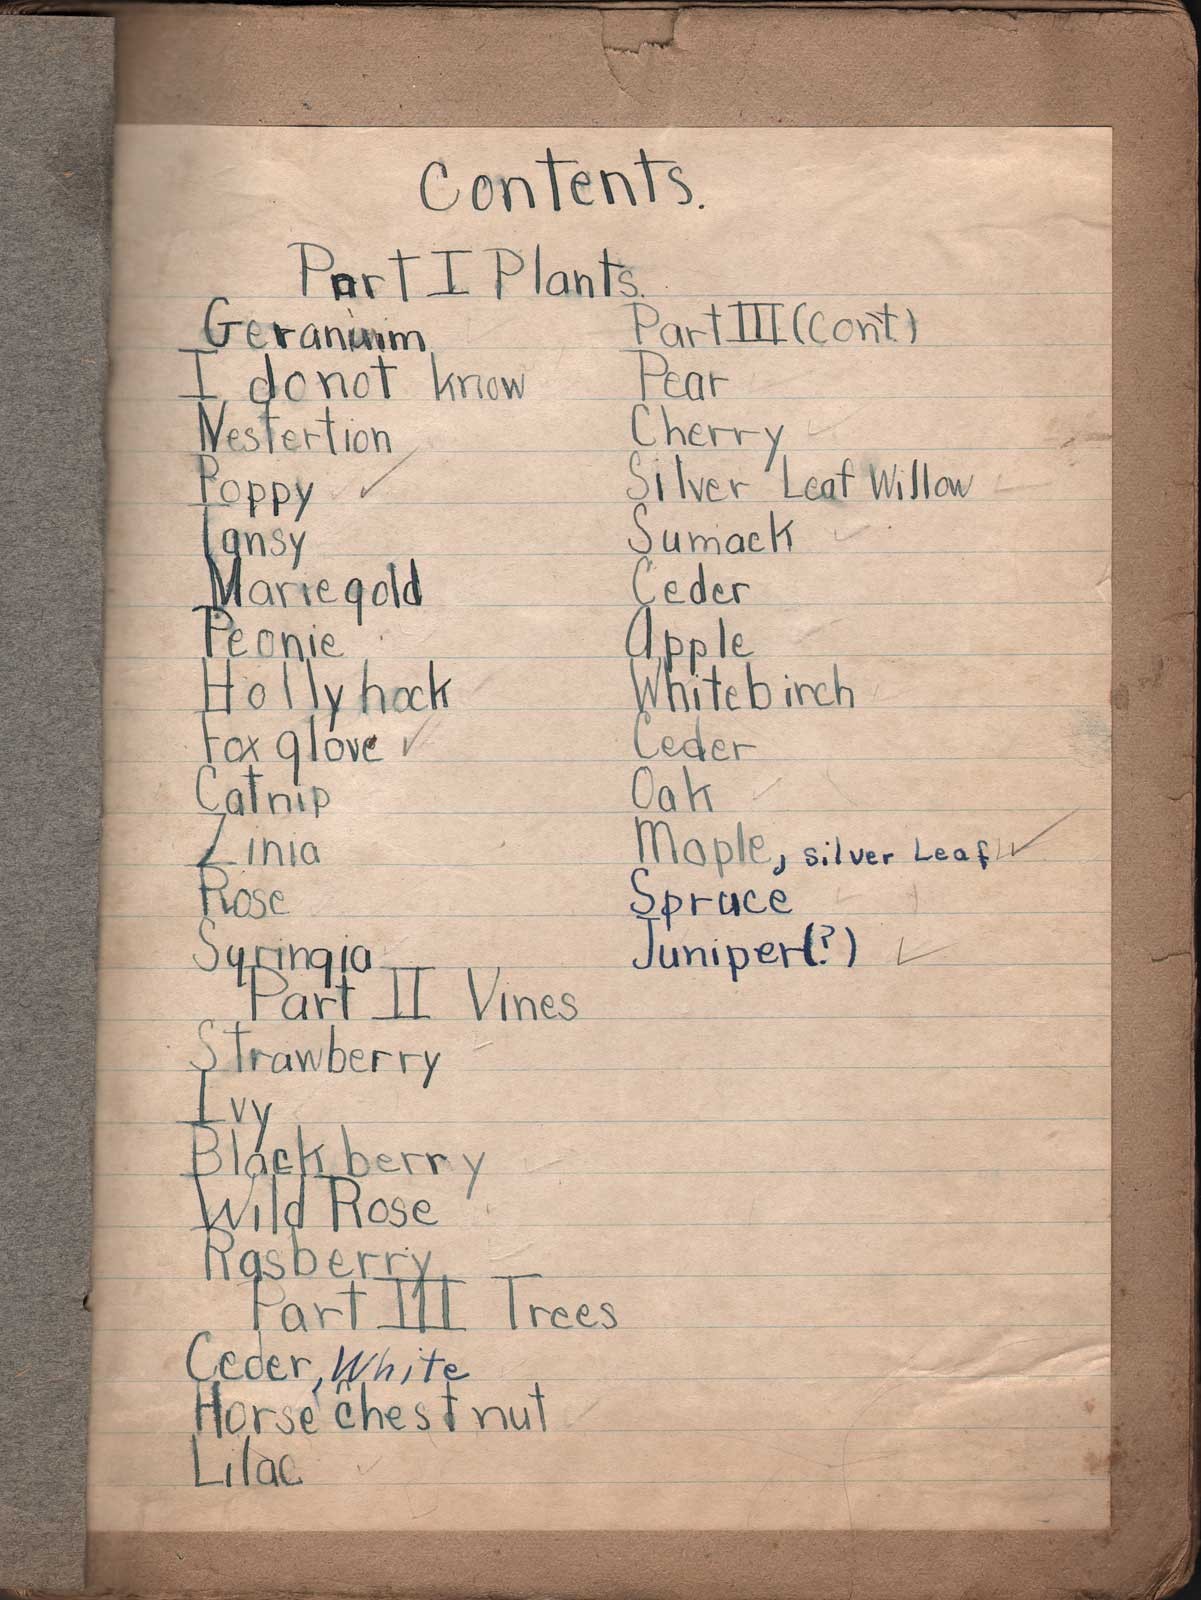 Contents.
Part I Plants.
Geranium
I do not know
Nestertion
Poppy ✓
Tansy
Mariegold
Peonie
Hollyhock
Foxglove ✓
Catnip
Zinia
Rose
Syringia
Part II Vines
Strawberry
Ivy
Blackberry
Wild Rose
Rasberry
Part III Trees
Ceder, White
Horse chestnut
Lilac
Part III (Cont)
Pear
Cherry
Silver Leaf Willow
Sumack
Ceder
Apple
Whitebirch
Ceder
Oak
Maple, silver Leaf ✓
Spruce
Juniper(?) ✓